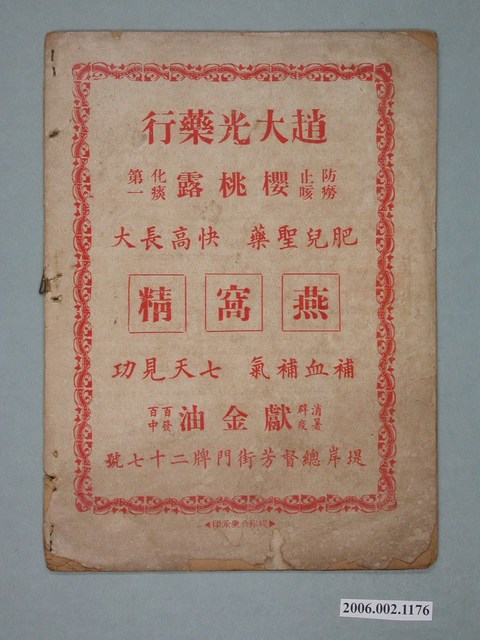 趙大光藥行
防癆止咳 櫻桃露 化痰第一
肥兒聖藥 快高長大
燕窩精
補血補氣 七天見功
消暑辟疫 獻金油 百發百中
堤岸總督芳街門牌二十七號
2006.002.1176